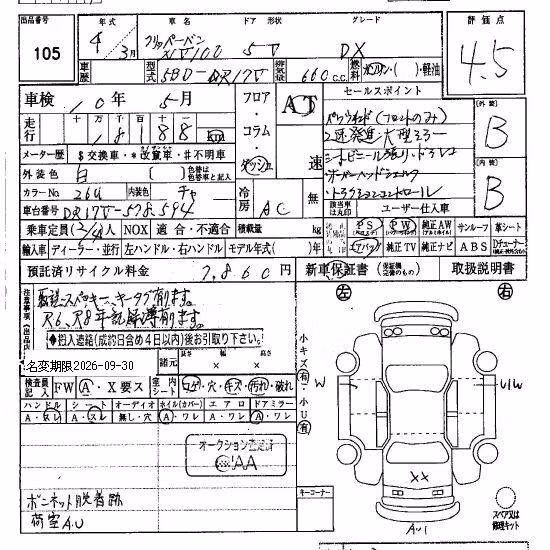 出品番号
105
年式 4年 3月
車名 クリッパーバン
ドア 形状 5V
グレード DX
評価点 4.5
車歴
型式 5BD-DR17V
排気量 660 c.c.
燃料 ガソリン・( )・軽油
車検 10年 5月
フロア・コラム・ダッシュ
AT
速
セールスポイント
パワーウインド(フロントのみ)
外装 B
内装 B
走行 十万 万 千 百 十
18188 km
メーター歴 $交換車・*改ざん車・#不明車
外装色 白 ( )色替は色替車と記入
カラーNo. 26U 内装色 チャ
冷房 AC
無
車台番号 DR17V-578594
該当車は丸印
ユーザー仕入車
乗車定員 (2/4)人 NOX 適合・不適合 積載量 kg
PS PW 純正AW サンルーフ 革シート
輸入車 ディーラー・並行 左ハンドル・右ハンドル モデル年式( )年
エアバッグ 純正TV 純正ナビ ABS Dチューナー
預託済リサイクル料金 7,860円
新車保証書
取扱説明書
注意事項(出品店)
取説、スペアキー、キータグ有ります。
R6、R8年記録簿有ります。
◆搬入遺繕(成約日含め4日以内)後お引取り下さい。
名変期限2026-09-30
諸元 長さ × 幅 × 高さ
検査員記入 FW A・X要ス 室内シート コゲ・穴・キズ・汚れ・破れ
ハンドル シート オーディオ ホイル(カバー) エアロ ドアミラー
A・スレ A・スレ 無し・穴 A・ワレ A・ワレ A・ワレ
小キズ有
小U有
オークション査定済
AA
ボンネット脱着跡
荷室A.U
キーコーナー
左
右
W
U1W
XX
A・1
スペア又は修理キット